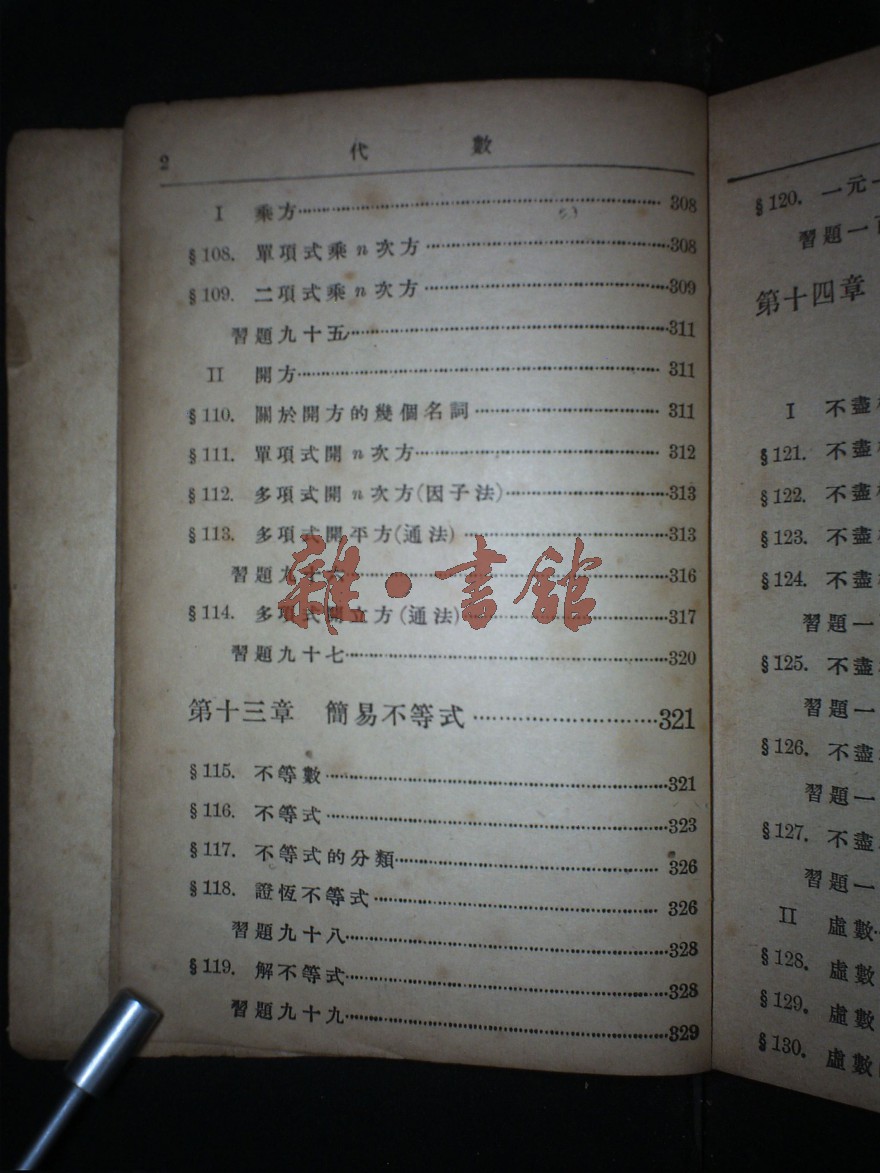 2 代數
I 乘方 308
§108. 單項式乘n次方 308
§109. 二項式乘n次方 309
習題九十五 311
II 開方 311
§110. 關於開方的幾個名詞 311
§111. 單項式開n次方 312
§112. 多項式開n次方(因子法) 313
§113. 多項式開平方(通法) 313
習題九十六 316
§114. 多項式開立方(通法) 317
習題九十七 320
第十三章 簡易不等式 321
§115. 不等數 321
§116. 不等式 323
§117. 不等式的分類 326
§118. 證恆不等式 326
習題九十八 328
§119. 解不等式 328
習題九十九 329
雜·書館
§120. 一元一
習題一百
第十四章
I 不盡
§121. 不盡
§122. 不盡
§123. 不盡
§124. 不盡
習題一
§125. 不盡
習題一
§126. 不盡
習題一
§127. 不盡
習題一
II 虛數
§128. 虛數
§129. 虛數
§130. 虛數